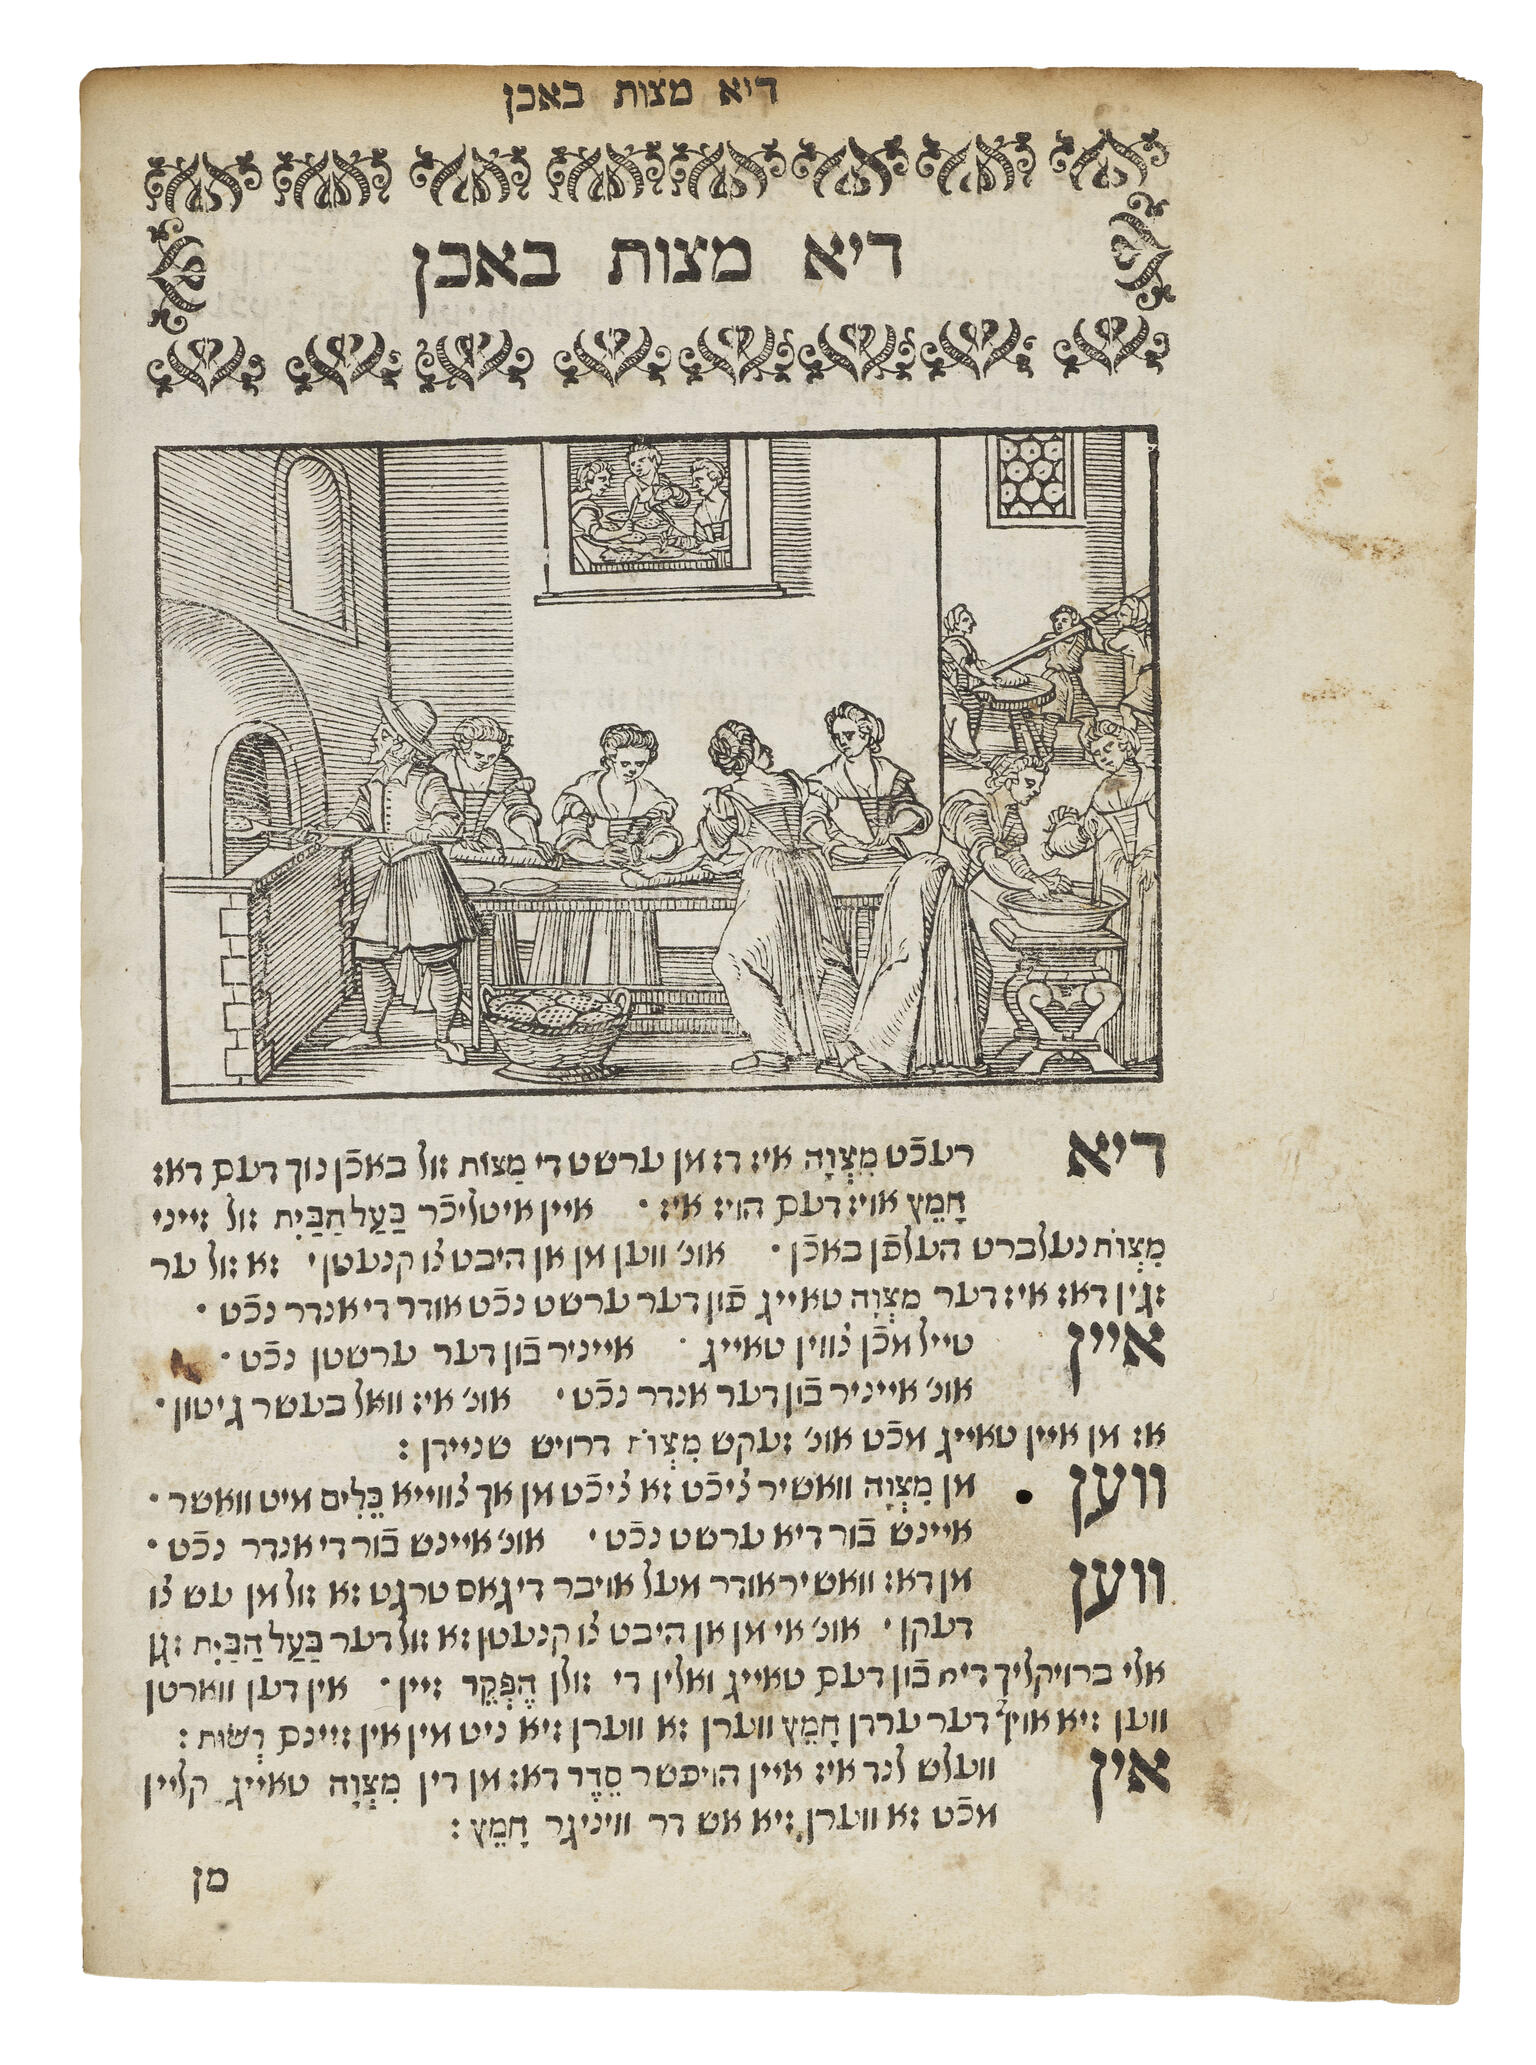 דיא מצות באכן
דיא מצות באכן
דיא רעכֿט מִצְוָה איז דז מן ערשט די מַצוֹת זול באכֿן נוך דעס דאז
חָמֵץ אויז דעס הויז איז • איין איטליכֿר בַּעַל הַבַּיִת זול זייני
מִצְוֹת נעלברט העלפֿן באכֿן • אונ' ווען מן אן היבט צו קנעטן • זא זול ער
זגין דאז איז דער מצְוָה טאייג פֿון דער ערשט נכֿט אודר די אנדר נכֿט •
איין טייל מכֿן צווין טאייג • אייניר בֿון דער ערשטן נכֿט •
אונ' אייניר בֿון דער אנדר נכֿט • אונ' איז וואל בעשר גיטון •
אז מן איין טאייג מכֿט אונ' זעקש מִצְוֹת דרויש שניידן :
ווען מן מִצְוָה וואשיר ציכֿט זא ציכֿט מן אך צווייא כֵּלִים מיט וואשר •
איינש בֿור דיא ערשט נכֿט • אונ' איינש בֿור די אנדר נכֿט •
ווען מן דאז וואשיר אודר מעל אויבר די גאס טרגט זא זול מן עש צו
דעקן • אונ' אי מן אן היבט צו קנעטן זא זול דער בַּעַל הַבַּיִת זגן
אלי ברויקליך דיא בֿון דעס טאייג ואלין די זולן הֶפְקֵר זיין • אין דען ווארטן
ווען זיא אויף דער ערדן חָמֵץ ווערן זא ווערן זיא ניט מין אין זיינס רְשׁוּת :
אין וועלש לנד איז איין הויפשר סֵדֶר דאז מן דין מִצְוָה טאייג קליין
מכֿט זא ווערן זיא אש דר וויניגר חָמֵץ :
מן